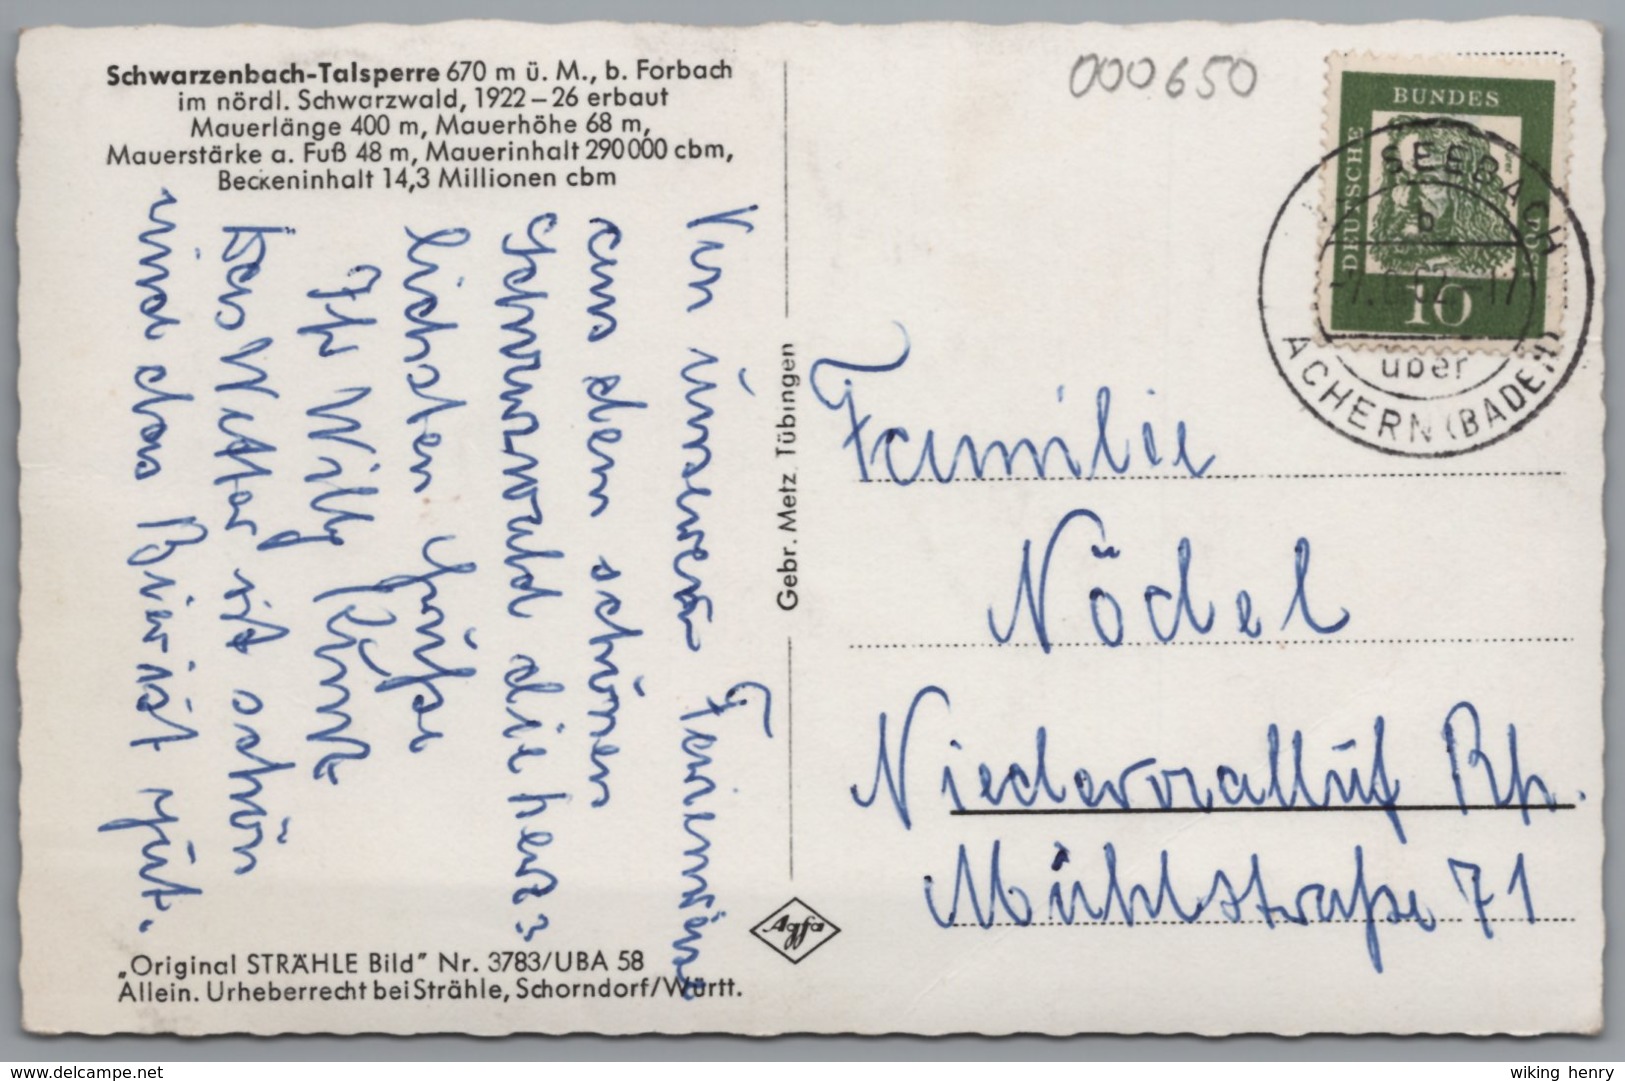 Schwarzenbach-Talsperre 670 m ü. M., b. Forbach
im nördl. Schwarzwald, 1922–26 erbaut
Mauerlänge 400 m, Mauerhöhe 68 m,
Mauerstärke a. Fuß 48 m, Mauerinhalt 290 000 cbm,
Beckeninhalt 14,3 Millionen cbm
Von unserem
aus dem schönen
Schwarzwald die herz=
lichsten Grüße
Ihr Willy
Das Wetter ist schön
und das Bier ist gut.
„Original STRÄHLE Bild" Nr. 3783/UBA 58
Allein. Urheberrecht bei Strähle, Schorndorf/Württ.
Gebr. Metz, Tübingen
Agfa
000650
DEUTSCHE BUNDESPOST
10
SEEBACH
b
über
ACHERN (BADEN)
Familie
Nödel
Niederwalluf Rh.
Mühlstraße 71
www.delcampe.net
wiking henry